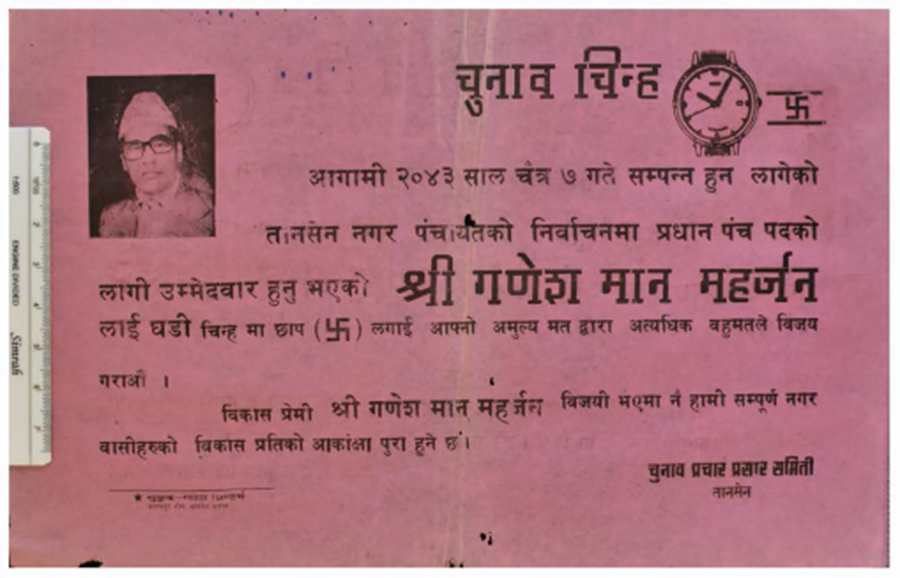 चुनाव चिन्ह 卐
आगामी २०४३ साल चैत्र ७ गते सम्पन्न हुन लागेको
तानसेन नगर पंचायतको निर्वाचनमा प्रधान पंच पदको
लागी उम्मेदवार हुनु भएको श्री गणेश मान महर्जन
लाई घडी चिन्ह मा छाप (卐) लगाई आफ्नो अमुल्य मत द्वारा अत्यधिक वहुमतले विजय
गराऔं ।
विकास प्रेमी श्री गणेश मान महर्जन विजयी भएमा नै हामी सम्पूर्ण नगर
वासीहरुको विकास प्रतिको आकांक्षा पुरा हुने छ।
चुनाव प्रचार प्रसार समिती
तानसेन
ENGINE DIVIDED